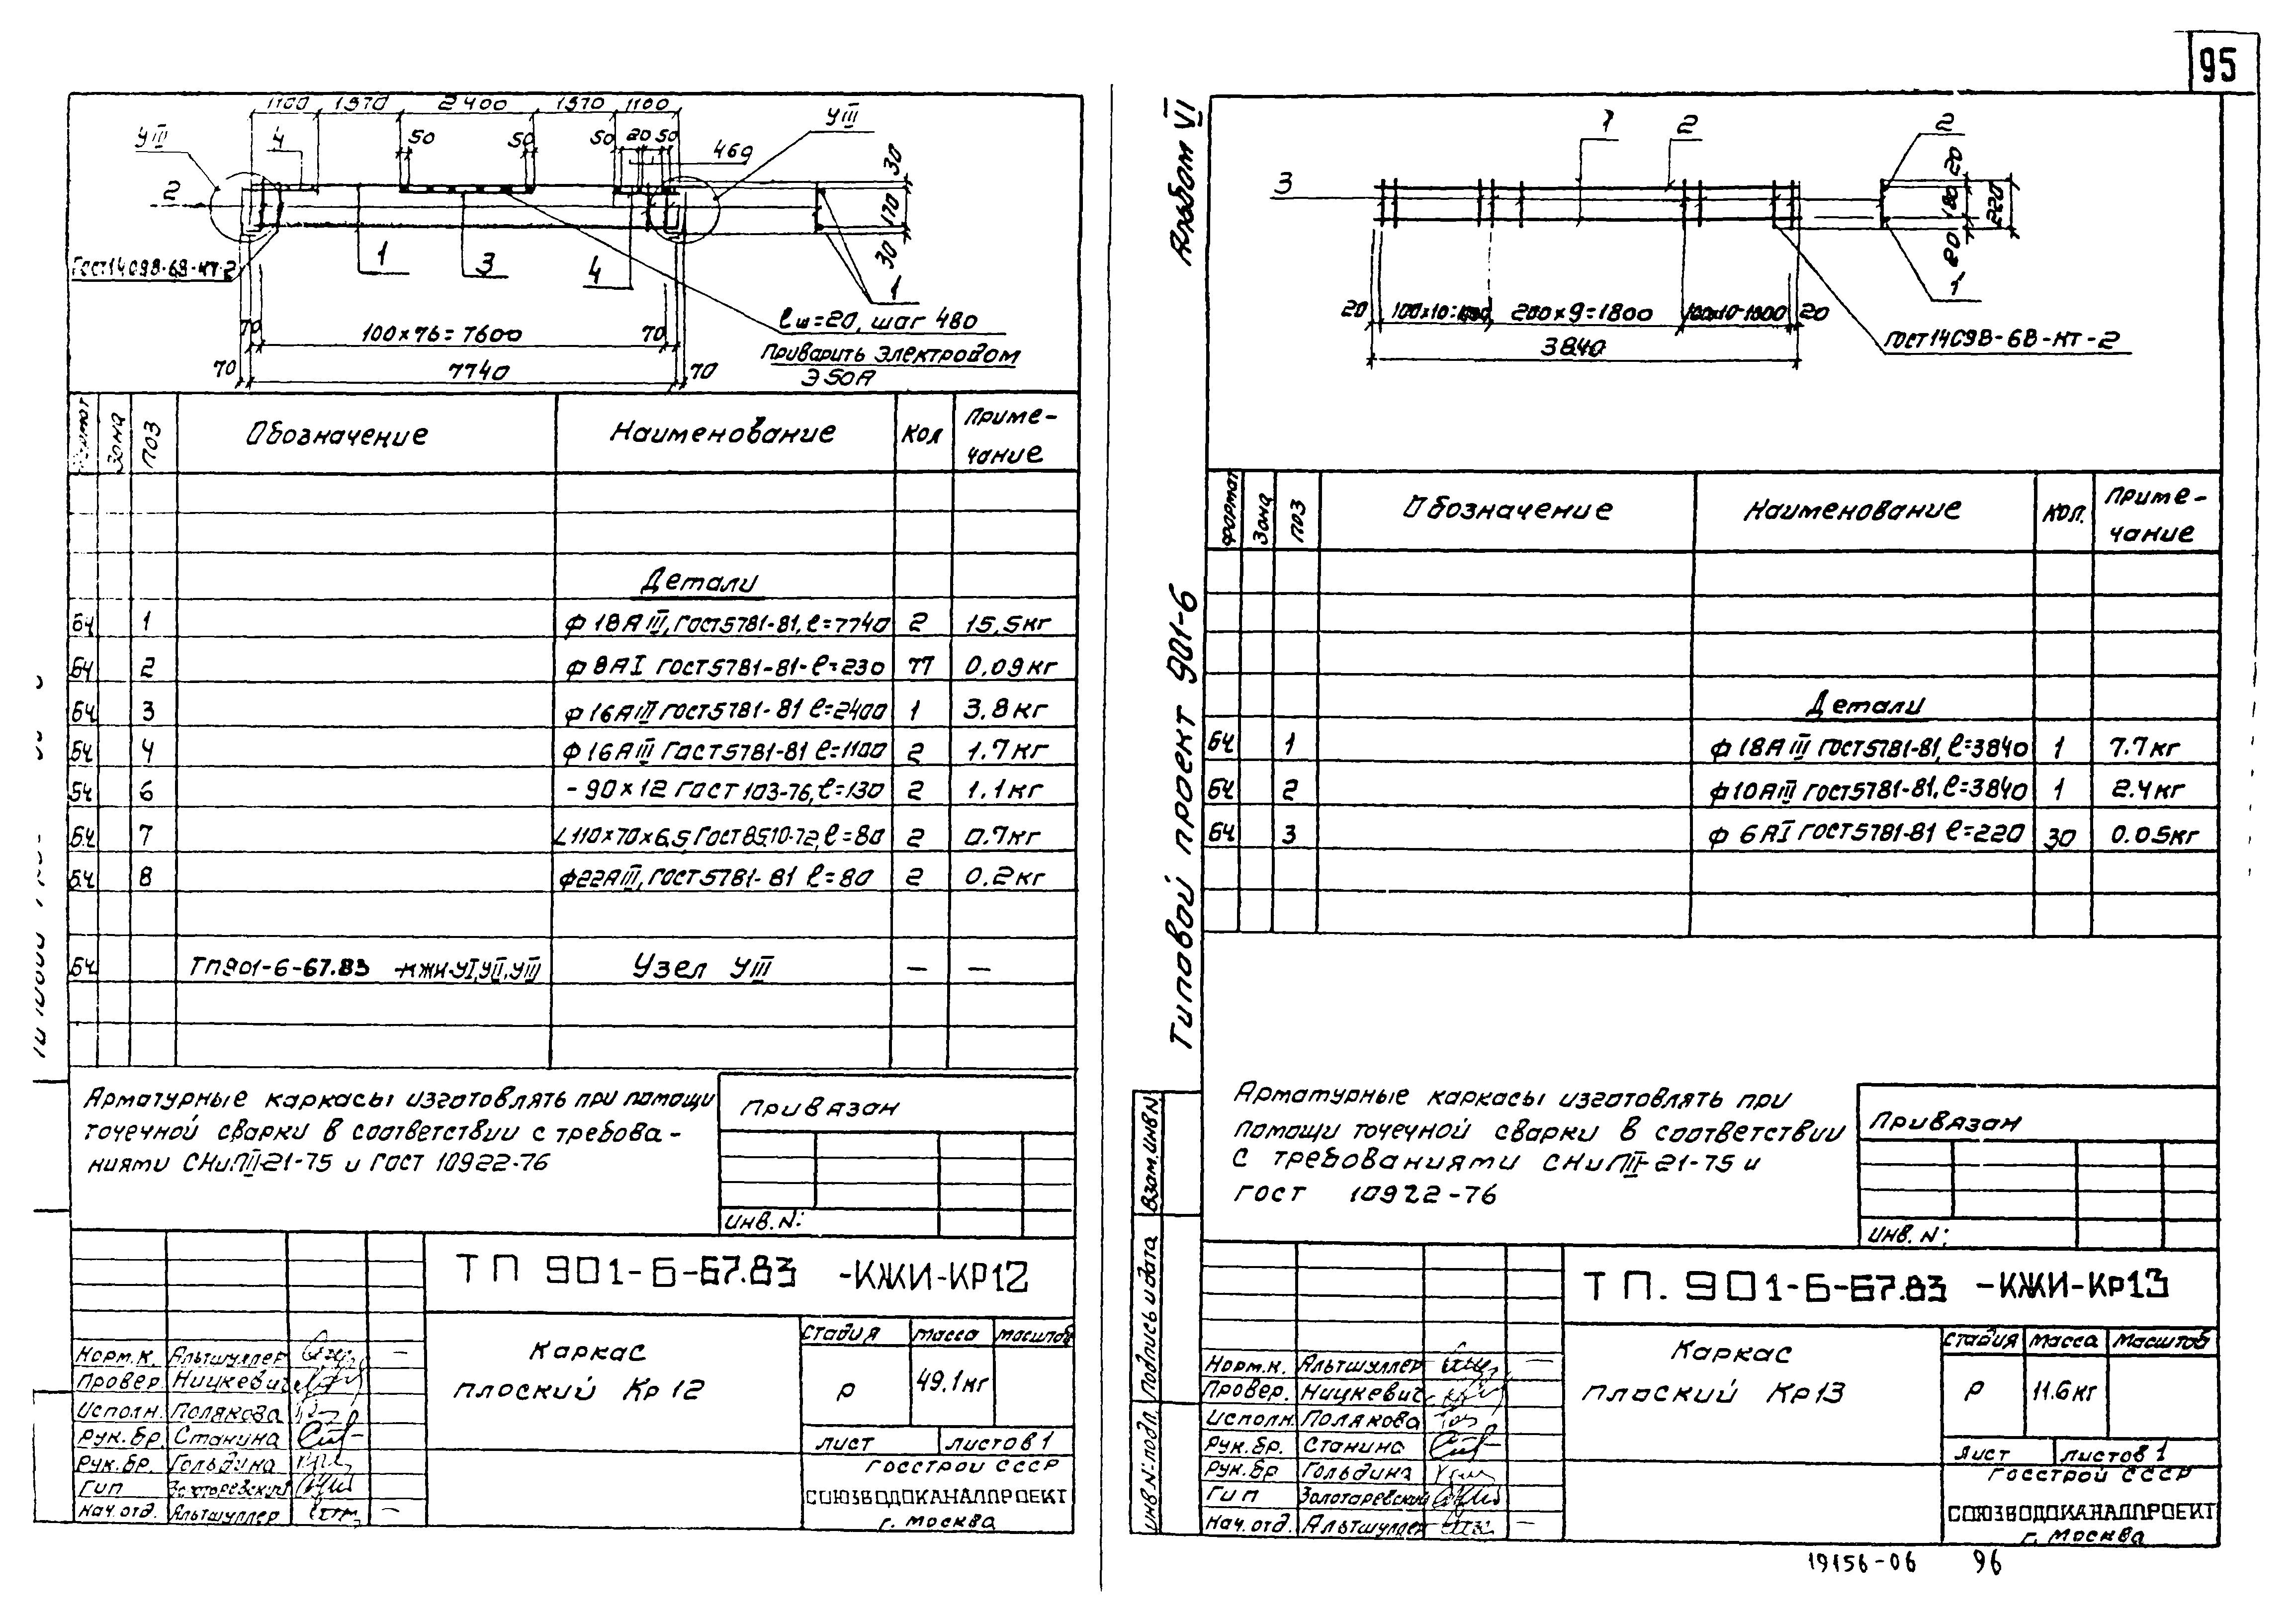 95
1100 1370 2400 1370 1100
УIII 4 50 50 50 20 50 УIII
460
2
30
170
30
ГОСТ14098-68-КТ-2
1 3 4 1
70 100×76=7600 70
70 7740 70
ℓш=20, шаг 480
Приварить электродом
Э50А
Формат Зона Поз Обозначение Наименование Кол Примечание
Детали
БЧ 1 ф18АIII, ГОСТ5781-81, ℓ=7740 2 15,5кг
БЧ 2 ф8АI ГОСТ5781-81-ℓ=230 77 0.09кг
БЧ 3 ф16АIII ГОСТ5781-81 ℓ=2400 1 3.8кг
БЧ 4 ф16АIII ГОСТ5781-81 ℓ=1100 2 1.7кг
БЧ 6 -90×12 ГОСТ 103-76, ℓ=130 2 1.1кг
БЧ 7 L110×70×6,5 ГОСТ8510-72, ℓ=80 2 0.7кг
БЧ 8 ф22АIII, ГОСТ5781-81 ℓ=80 2 0.2кг
БЧ ТП901-6-67.83 -КЖИ-УI,УII,УIII Узел УIII — —
Арматурные каркасы изготовлять при помощи
точечной сварки в соответствии с требова-
ниями СНиПIII-21-75 и ГОСТ 10922-76
Привязан
Инв. N:
ТП 901-6-67.83 -КЖИ-КР12
Каркас
плоский Кр12
Стадия Масса Масштаб
Р 49.1кг
Лист Листов 1
Госстрой СССР
СОЮЗВОДОКАНАЛПРОЕКТ
г. Москва
Норм.к. Альтшуллер —
Провер. Ницкевич
Исполн. Полякова
Рук.бр. Станина
Рук.бр. Гольдина
Гип Золотаревский
Нач.отд. Альтшуллер —
Альбом VI
Типовой проект 901-6
Взам.инв.N
Подпись и дата
Инв.N:подл.
1 2 2
3
20
180
20
220
1
20 100×10=1000 200×9=1800 100×10=1000 20
3840
ГОСТ14098-68-КТ-2
Формат Зона Поз Обозначение Наименование Кол. Примечание
Детали
БЧ 1 ф18АIII ГОСТ5781-81, ℓ=3840 1 7.7кг
БЧ 2 ф10АIII ГОСТ5781-81, ℓ=3840 1 2.4кг
БЧ 3 ф6АI ГОСТ5781-81 ℓ=220 30 0.05кг
Арматурные каркасы изготовлять при
помощи точечной сварки в соответствии
с требованиями СНиПIII-21-75 и
ГОСТ 10922-76
Привязан
Инв. N:
ТП. 901-6-67.83 -КЖИ-КР13
Каркас
плоский Кр13
Стадия Масса Масштаб
Р 11.6кг
Лист Листов 1
Госстрой СССР
СОЮЗВОДОКАНАЛПРОЕКТ
г. Москва
Норм.к. Альтшуллер —
Провер. Ницкевич
Исполн. Полякова
Рук.бр. Станина
Рук.бр Гольдина
Гип Золотаревский
Нач.отд. Альтшуллер —
19156-06 96